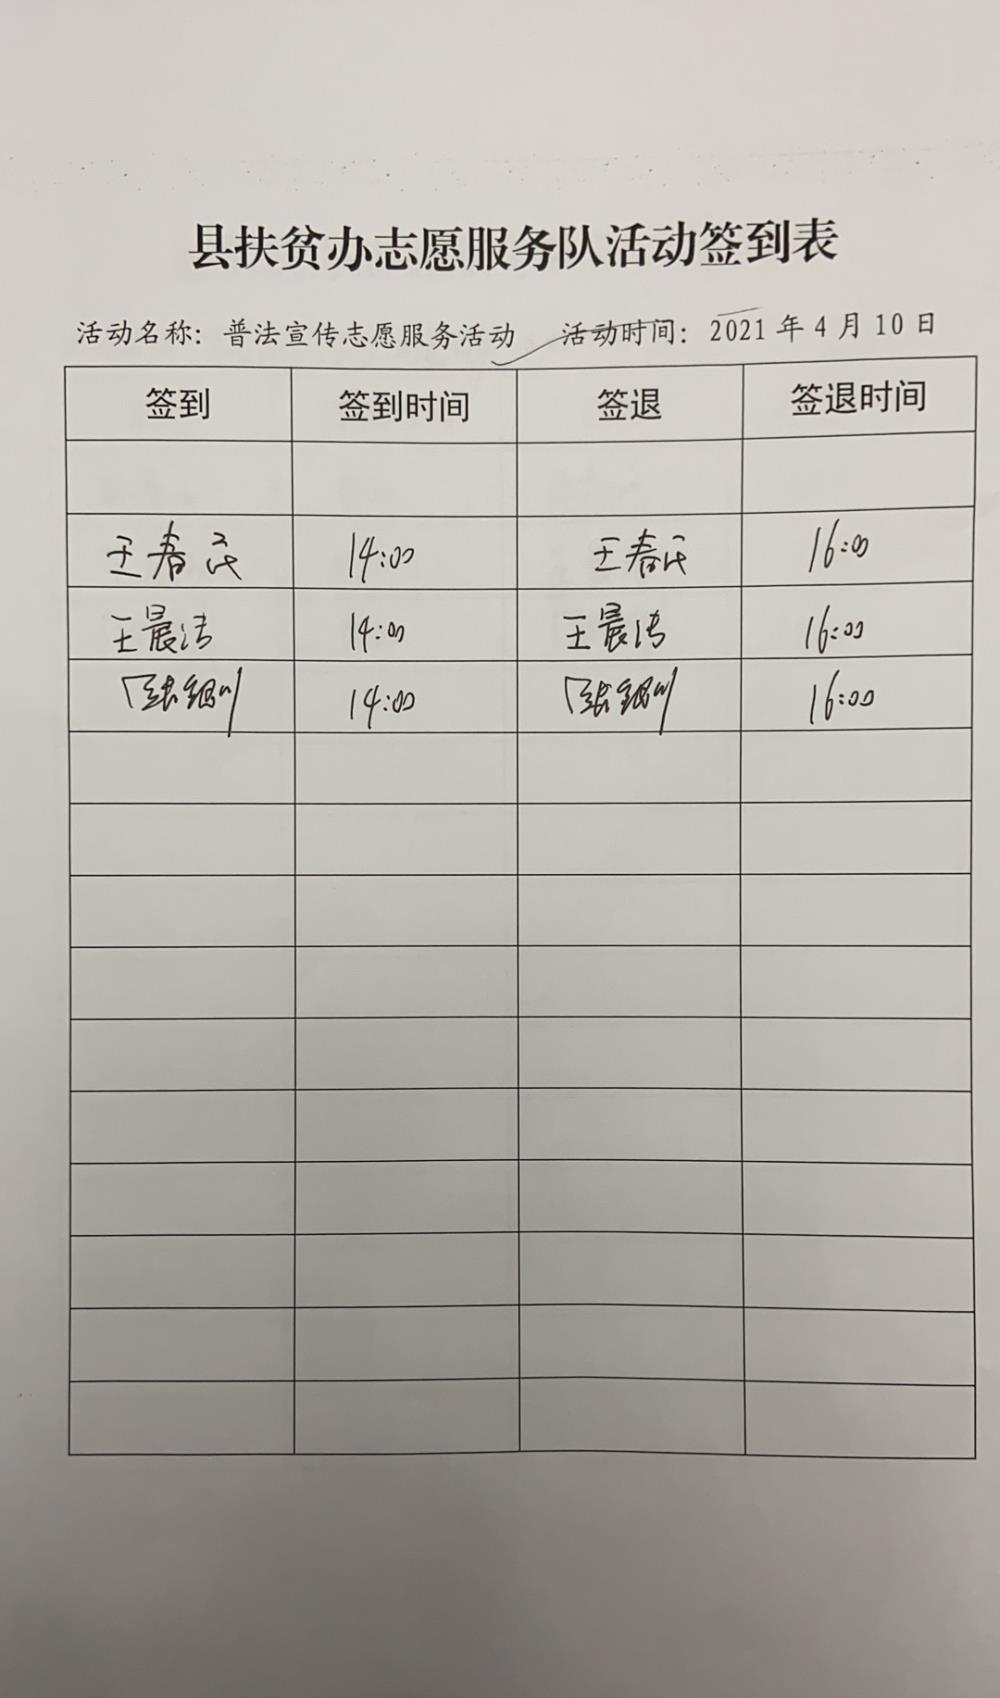 县扶贫办志愿服务队活动签到表
活动名称：普法宣传志愿服务活动 活动时间：2021 年 4 月 10 日
签到 签到时间 签退 签退时间
王春民 14:00 王春民 16:00
王晨洁 14:00 王晨洁 16:00
14:00 16:00